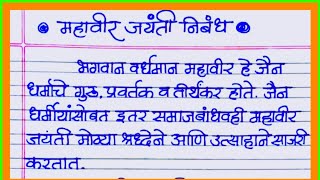 महावीर जयंती निबंध
भगवान वर्धमान महावीर हे जैन
धर्माचे गुरू, प्रवर्तक व तीर्थकर होते. जैन
धर्मीयांसोबत इतर समाजबांधवही महावीर
जयंती मोठ्या श्रध्देने आणि उत्साहाने साजरी
करतात.